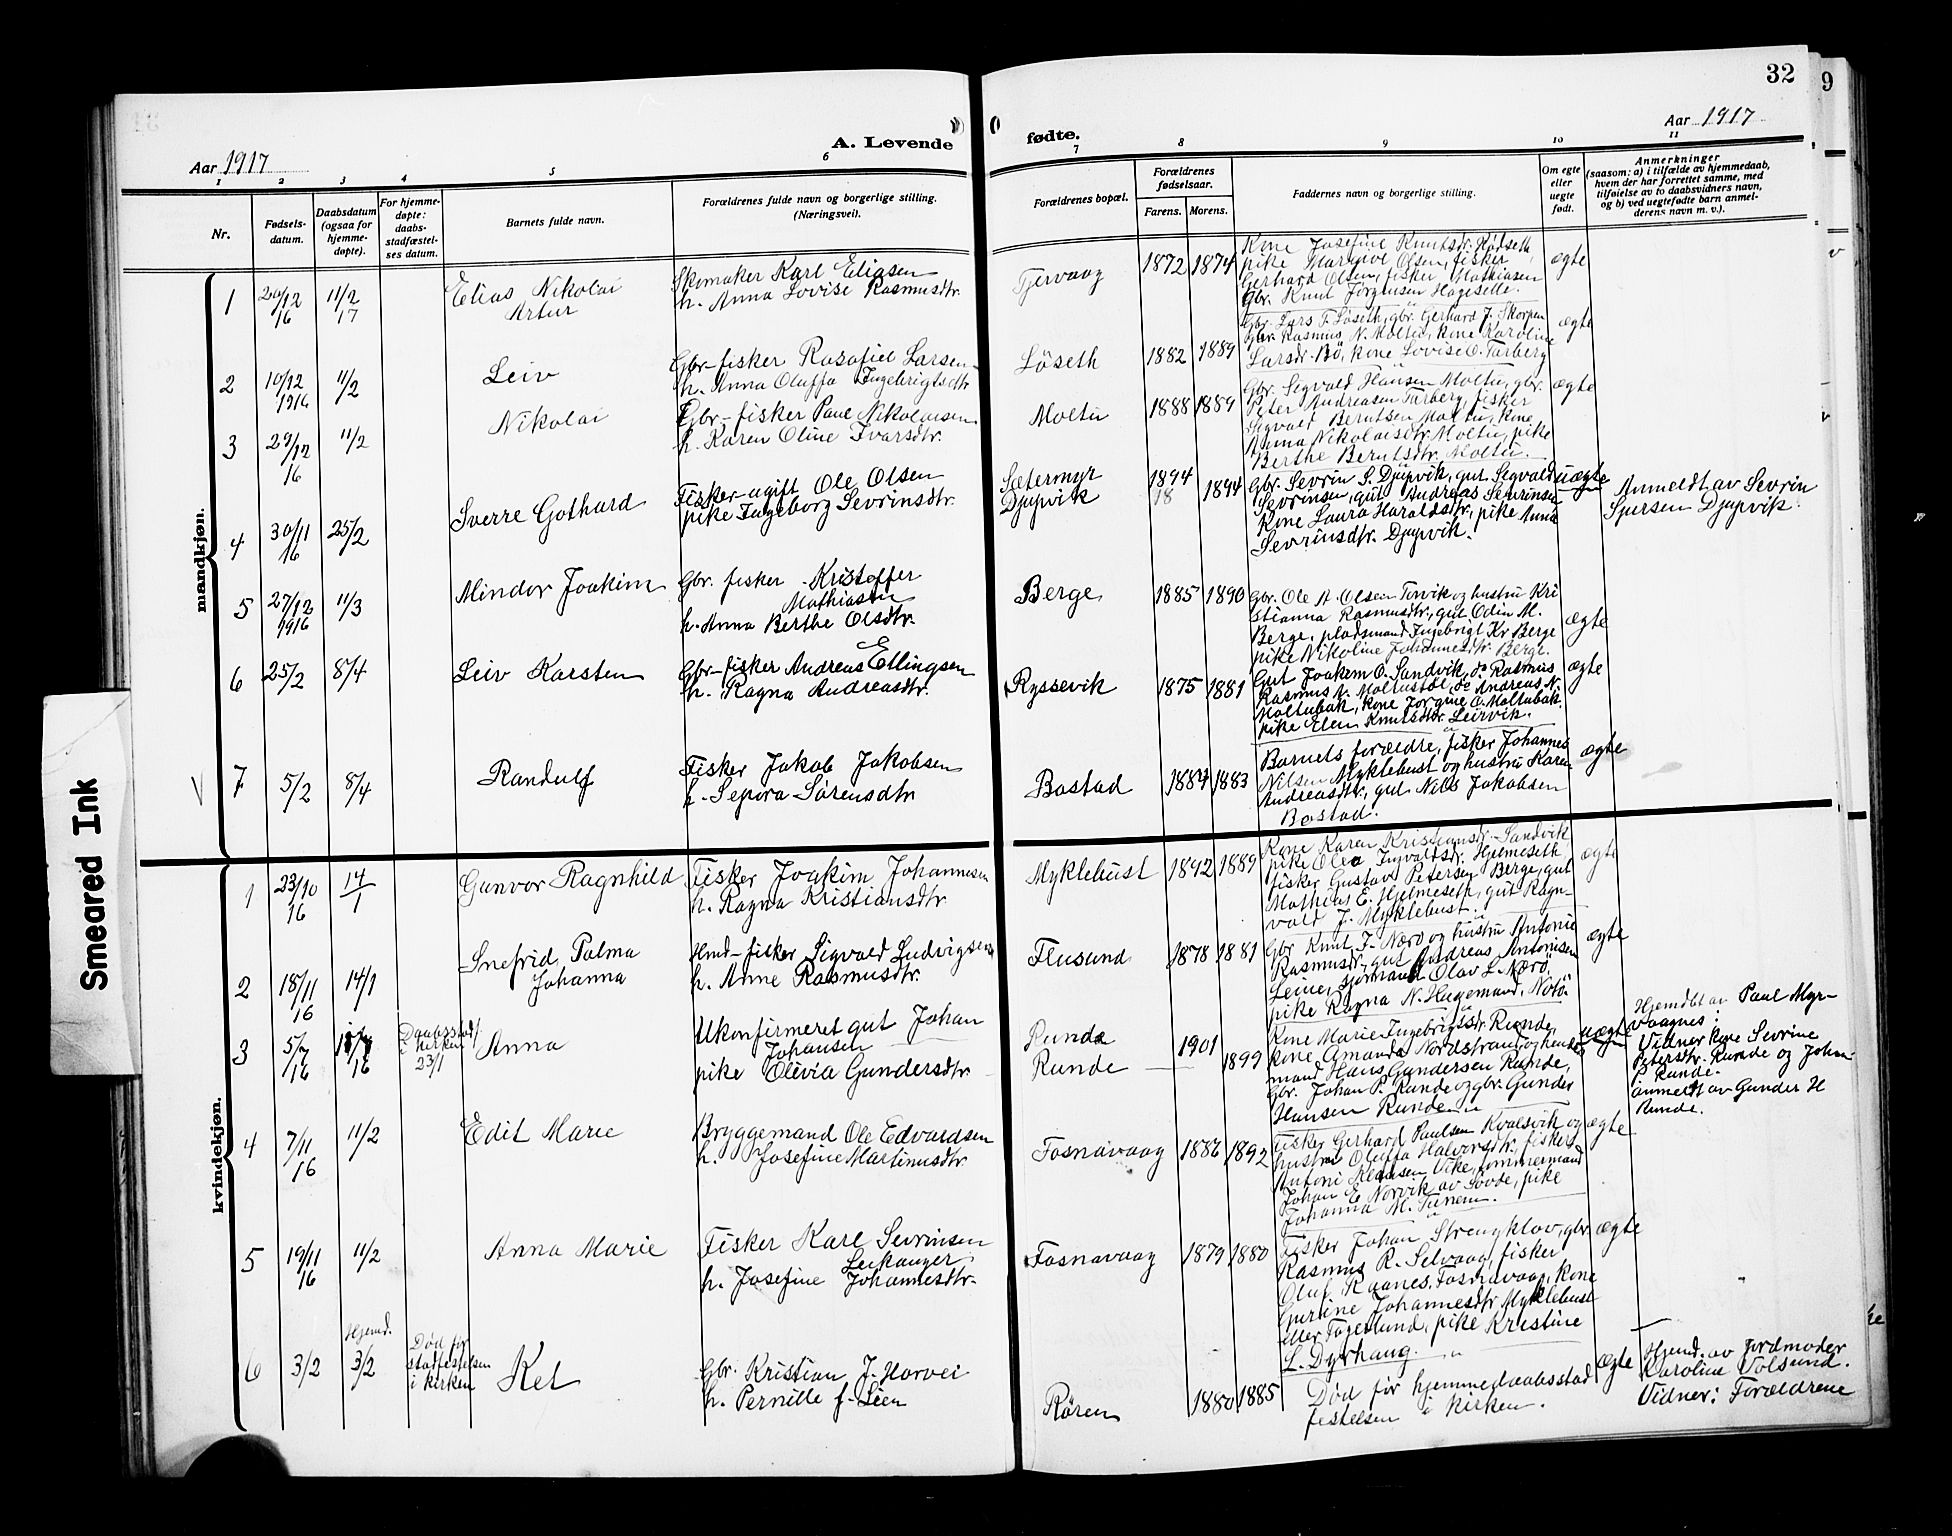 32
9
Aar 1917
A. Levende
fødte.
Aar 1917
1 2 3 4 5 6
7 8 9 10 11
Nr.
Fødsels-
datum.
Daabsdatum
(ogsaa for
hjemme-
døpte).
For hjemme-
døpte:
daabs-
stadfæstel-
ses datum.
Barnets fulde navn.
Forældrenes fulde navn og borgerlige stilling.
(Næringsvei).
Forældrenes bopæl.
Forældrenes
fødselsaar.
Farens. Morens.
Faddernes navn og borgerlige stilling.
Om egte
eller
uegte
født.
Anmerkninger
(saasom: a) i tilfælde av hjemmedaab,
hvem der har forrettet samme, med
tilføielse av to daabsvidners navn,
og b) ved uegtefødte barn anmel-
derens navn m. v.).
mandkjøn.
1 20/12 16 11/2 17
Elias Nikolai
Artur
Skomaker Karl Eliasen
h. Anna Lovise Rasmusdtr.
Tjervaag 1872 1874
Kone Josefine Knutsdr. Rødseth,
pike Margive Olsen, fisker
Gerhard Olsen, fisker Mathiasen
Gbr. Knut Jørgensen Hageselle.
ægte
2 10/12 1916 11/2
Leiv
Gbr-fisker Rasafiel Larsen
h. Anna Oluffa Ingebrigtsdtr
Löseth 1882 1889
Gbr. Lars T. Löseth, gbr. Gerhard J. Skorpen
Gbr. Rasmus N. Moltu, kone Karoline
Larsdr. Bö, kone Lovise O. Tarberg
ægte
3 29/12 16 11/2
Nikolai
Gbr-fisker Paul Nikolaisen
h. Karen Oline Ivarsdtr.
Moltu 1888 1889
Gbr. Segvald Hansen Moltu, gbr.
Peter Andreasen Tarberg, fisker
Sigvald Berntsen Moltu, kone
Anna Nikolaisdtr. Moltu, pike
Berthe Berntsdtr. Moltu.
ægte
4 30/11 16 25/2
Sverre Gothard
Fisker-ugift Ole Olsen
pike Ingeborg Sevrinsdtr.
Sætermyr 1894
Djupvik 18 1894
Gbr. Sevrin S. Djupvik, gut Segvald
Sevrinsen, gut Andreas Sevrinsen
Kone Laura Haraldsdtr, pike Anna
Sevrinsdtr. Djupvik.
uægte
Anmeldt av Sevrin
Sjursen Djupvik.
5 27/12 1916 11/3
Mindor Joakim
Gbr. fisker Kristoffer
Mathiasen
h. Anna Berthe Olsdtr.
Berge 1885 1890
Gbr. Ole A. Olsen Torvik og hustru Kri
stianna Rasmusdtr., gut Odin M.
Berge, pladsmand Ingebrigt Kr Berge
pike Nikoline Johannesdtr. Berge.
ægte
6 25/2 8/4
Leiv Karsten
Gbr-fisker Andreas Ellingsen
h. Ragna Andreasdtr.
Ryssevik 1875 1881
Gut Joakim O. Sandvik, do Rasmus
Rasmus A. Moltustöl, do Andreas N.
Moltubak, kone Jorgine O. Moltubak.
pike Elen Knutsdtr. Leirvik.
ægte
7 5/2 8/4
Randulf
Fisker Jakob Jakobsen
h. Sepora Sörensdtr
Bostad 1884 1883
Barnets forældre, fisker Johannes
Nilsen Myklebust og hustru Karen
Andreasdtr., gut Nils Jakobsen
Bostad.
ægte
kvindekjøn.
1 23/10 16 14/1
Gunvor Ragnhild
Fisker Joakim Johannesen
h. Ragna Kristiansdtr
Myklebust 1892 1889
Kone Karen Kristiansdr. Sandvik
pike Olea Ingvaldsdr. Hjelmeseth
fisker Gustav Petersen Berge, gut
Mathias E. Hjelmeseth, gut Ragn-
vald J. Myklebust.
ægte
2 18/11 16 14/1
Snefrid Palma
Johanna
Hmd-fisker Sigvald Ludvigsen
h. Anne Rasmusdtr.
Flusund 1878 1881
Gbr Knut J. Nærö og hustru Antonie
Rasmusdr, gut Andreas Antonisen
Leine, sjömand Olav L. Nærö,
pike Ragna N. Hugemand, Notö.
ægte
3 5/7 16
Daabsstadf
i kirken
23/1
Anna
Ukonfirmeret gut Johan
Johansen
pike Olevia Gundersdtr
Runde
Runde 1901 1899
Kone Marie Ingebrigtsdtr Runde,
kone Amanda Nordstrand og hendes
mand Hans Gundersen Runde,
Gbr. Johan P. Runde og gbr. Gunder
Hansen Runde
uægte
Hjemdbt av Paul Myr-
vaagnes:
Vidner kone Sevrine
Petersdtr. Runde og Johan
P. Runde.
anmeldt av Gunder H
Runde.
4 7/11 16 11/2
Edit Marie
Bryggemand Ole Edvardsen
h. Josefine Martinusdtr
Fosnavaag 1886 1892
Fisker Gerhard Paulsen Kvalsvik og
hustru Oluffa Halvorsdtr. fisker
Antoni Klausen Vike, tømmermand
Johan E Norvik av Sövde, pike
Johanna M. Tunem.
ægte
5 19/11 16 11/2
Anna Marie
Fisker Karl Sevrinsen
Leikanger
h. Josefine Johannesdtr.
Fosnavaag 1879 1880
Fisker Johan Strengklov, gbr.
Rasmus R. Selvaag, fisker
Oluf Raanes, Fosnavaag, kone
Gurine Johannesdtr Myklebust
eller Fagerlund, pike Kristine
L. Dyrhaug.
ægte
6 3/2
Hjemd.
3/2
Død før
stadfestelsen
i kirken
Ket
Gbr. Kristian J. Horvei
h. Pernille f. Lien
Røren 1880 1885
Død før hjemmedaabsstad
festelsen i kirken.
ægte
Hjemd. av jordmoder
Karoline Volsund.
Vidner: Forældrene
Smeared Ink